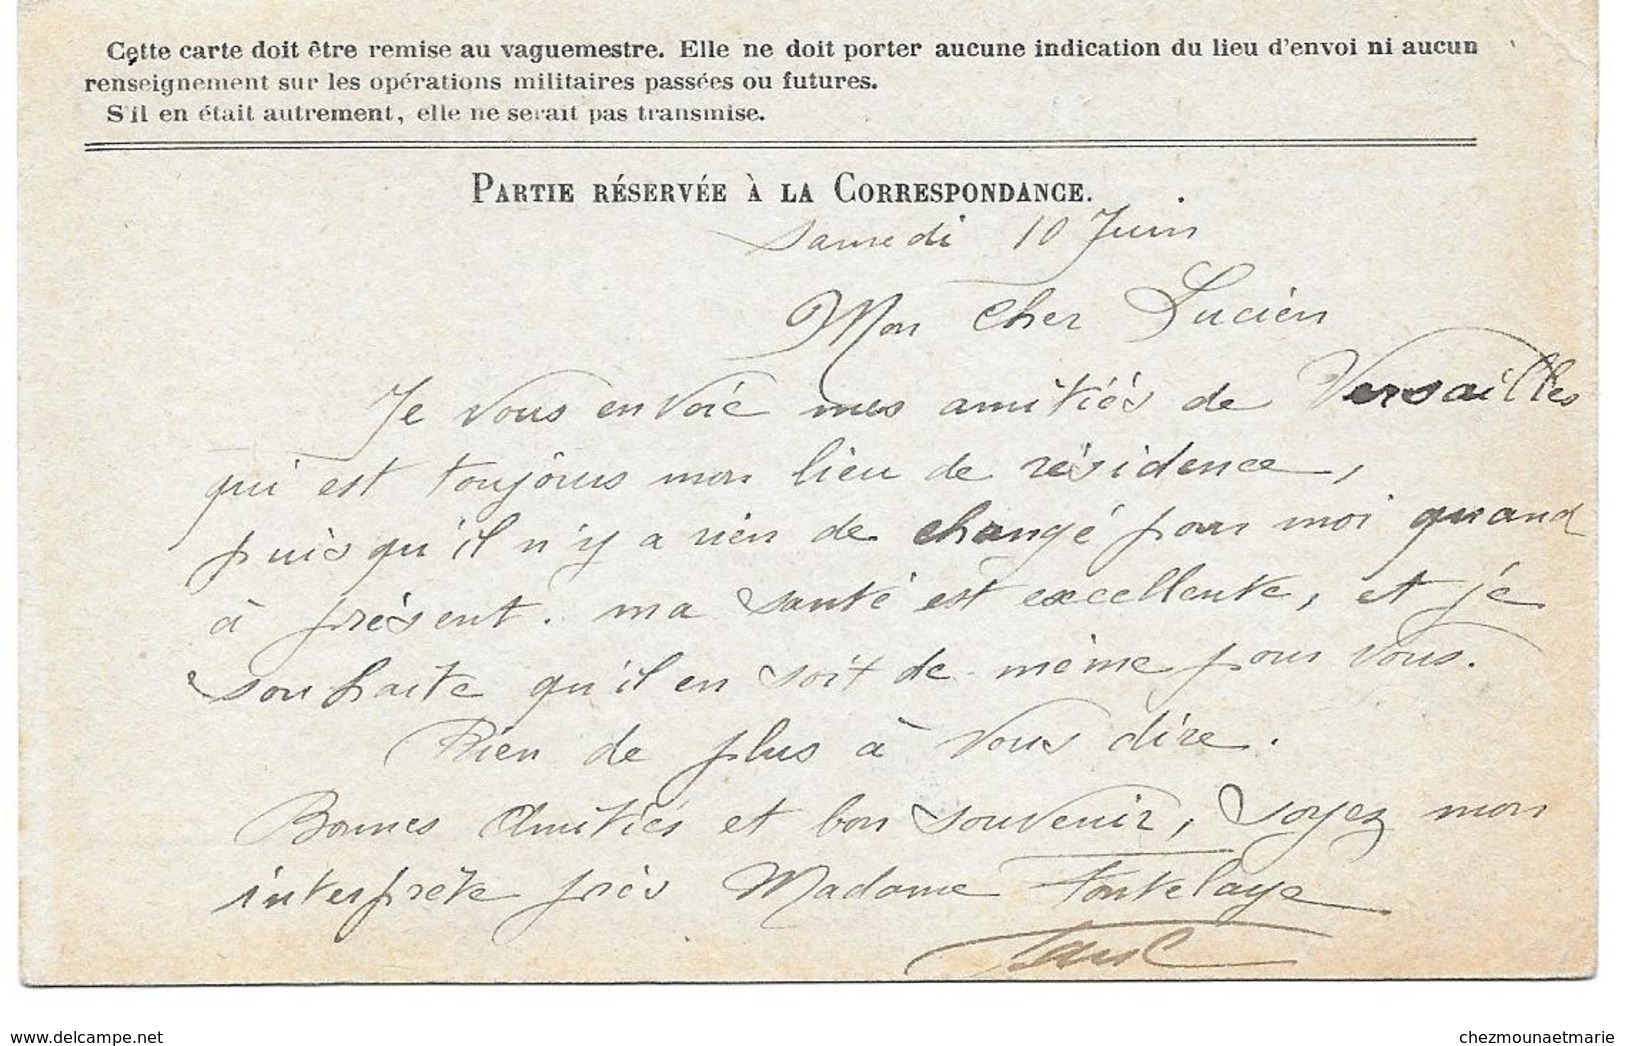 Cette carte doit être remise au vaguemestre. Elle ne doit porter aucune indication du lieu d'envoi ni aucun
renseignement sur les opérations militaires passées ou futures.
S'il en était autrement, elle ne serait pas transmise.
PARTIE RÉSERVÉE À LA CORRESPONDANCE.
Samedi 10 Juin
Mon cher Lucien
Je vous envoie mes amitiés de Versailles
qui est toujours mon lieu de résidence,
puisqu'il n'y a rien de changé pour moi quand
à présent. ma santé est excellente, et je
souhaite qu'il en soit de même pour vous.
Rien de plus à vous dire.
Bonnes amitiés et bon souvenir, soyez mon
interprète près Madame Fontelaye
www.delcampe.net
chezmounaetmarie